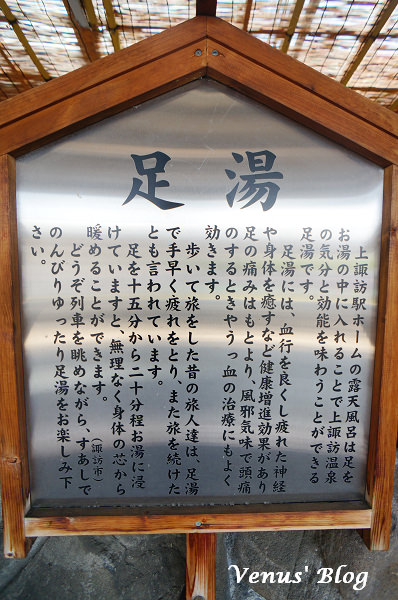 足湯
上諏訪駅ホームの露天風呂は足を
お湯の中に入れることで上諏訪温泉
の気分と効能を味わうことができる
足湯です。
足湯には、血行を良くし疲れた神経
や身体を癒すなど健康増進効果があり
足の痛みはもとより、風邪気味で頭痛
のするときやうっ血の治療にもよく
効きます。
歩いて旅をした昔の旅人達は、足湯
で手早く疲れをとり、また旅を続けた
とも言われています。
足を十五分から二十分程お湯に浸
けていますと、無理なく身体の芯から
暖めることができます。
どうぞ列車を眺めながら、すあしで
のんびりゆったり足湯をお楽しみ下
さい。
(諏訪市)
Venus' Blog